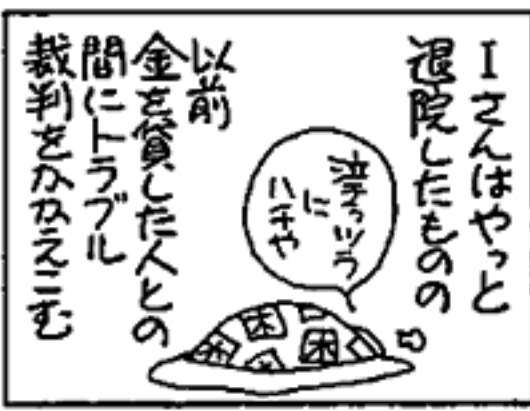 Iさんはやっと
退院したものの
泣きっツラ
に
ハチや
以前
金を貸した人との
間にトラブル
裁判をかかえこむ
困
困
困